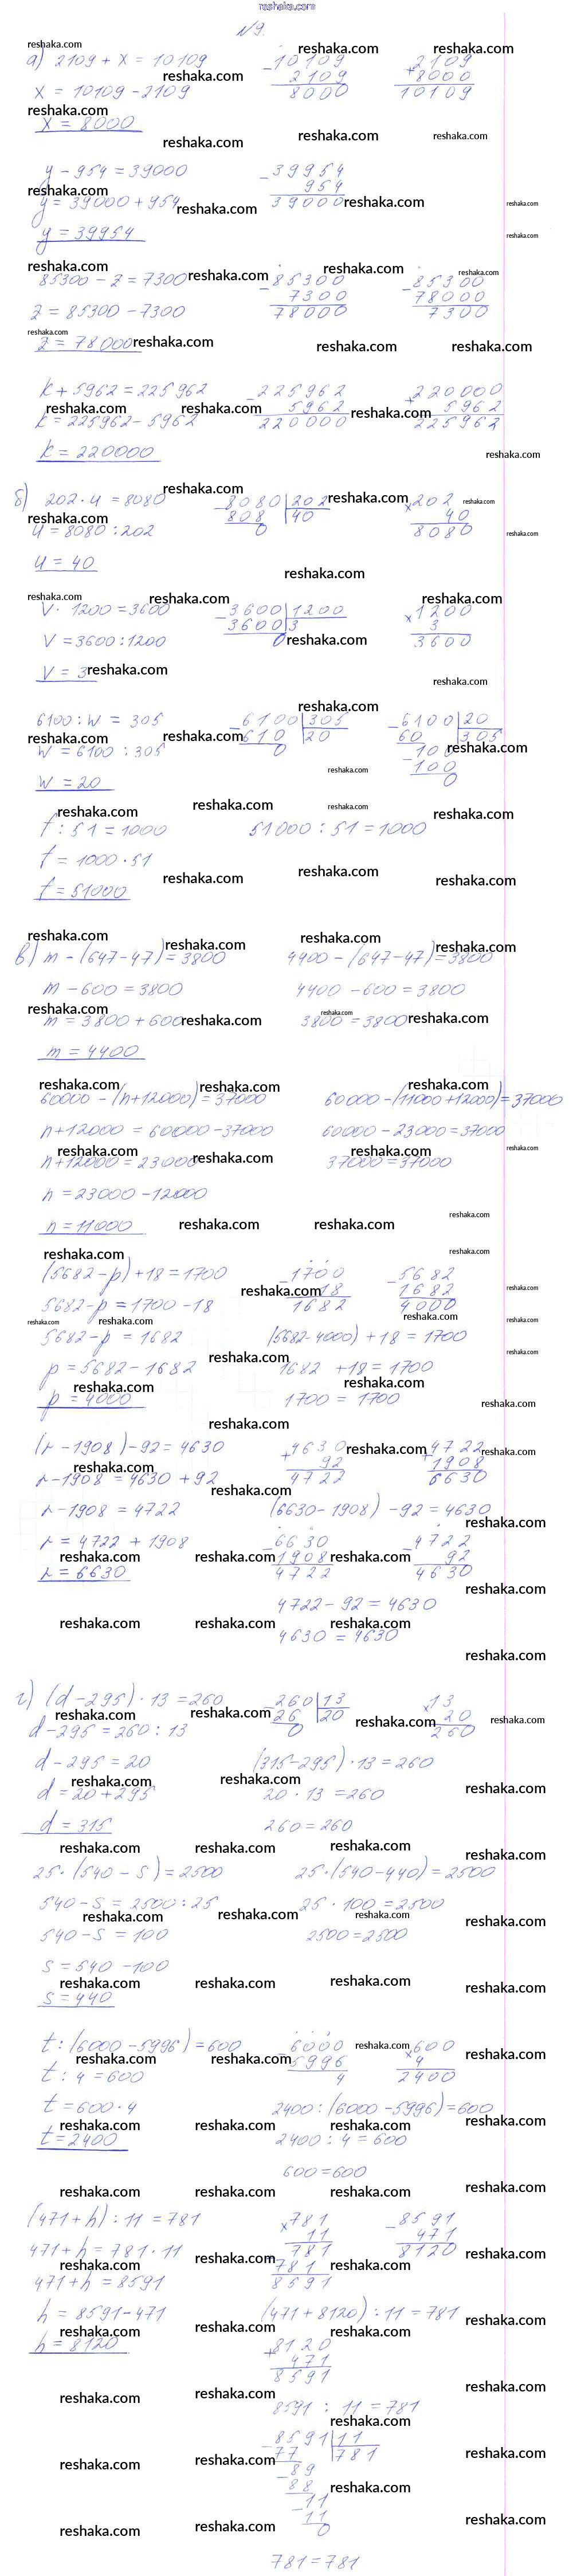 reshaka.com
№9.
а) 2109 + x = 10109
x = 10109 - 2109
x = 8000
10109
- 2109
8000
2109
+ 8000
10109
y - 954 = 39000
y = 39000 + 954
y = 39954
39954
- 954
39000
85300 - z = 7300
z = 85300 - 7300
z = 78000
85300
- 7300
78000
85300
- 78000
7300
k + 5962 = 225962
k = 225962 - 5962
k = 220000
225962
- 5962
220000
220000
+ 5962
225962
б) 202 · u = 8080
u = 8080 : 202
u = 40
8080 | 202
- 808 | 40
0
202
× 40
8080
V · 1200 = 3600
V = 3600 : 1200
V = 3
3600 | 1200
- 3600 | 3
0
1200
× 3
3600
6100 : W = 305
W = 6100 : 305
W = 20
6100 | 305
- 610 | 20
0
6100 | 20
- 60 | 305
100
- 100
0
f : 51 = 1000
f = 1000 · 51
f = 51000
51000 : 51 = 1000
в) m - (647 - 47) = 3800
m - 600 = 3800
m = 3800 + 600
m = 4400
4400 - (647 - 47) = 3800
4400 - 600 = 3800
3800 = 3800
60000 - (n + 12000) = 37000
n + 12000 = 60000 - 37000
n + 12000 = 23000
n = 23000 - 12000
n = 11000
60000 - (11000 + 12000) = 37000
60000 - 23000 = 37000
37000 = 37000
(5682 - p) + 18 = 1700
5682 - p = 1700 - 18
5682 - p = 1682
p = 5682 - 1682
p = 4000
1700
- 18
1682
5682
- 1682
4000
(5682 - 4000) + 18 = 1700
1682 + 18 = 1700
1700 = 1700
(r - 1908) - 92 = 4630
r - 1908 = 4630 + 92
r - 1908 = 4722
r = 4722 + 1908
r = 6630
4630
+ 92
4722
4722
+ 1908
6630
(6630 - 1908) - 92 = 4630
6630
- 1908
4722
4722
- 92
4630
4722 - 92 = 4630
4630 = 4630
г) (d - 295) · 13 = 260
d - 295 = 260 : 13
d - 295 = 20
d = 20 + 295
d = 315
260 | 13
- 26 | 20
0
13
× 20
260
(315 - 295) · 13 = 260
20 · 13 = 260
260 = 260
25 · (540 - s) = 2500
540 - s = 2500 : 25
540 - s = 100
s = 540 - 100
s = 440
25 · (540 - 440) = 2500
25 · 100 = 2500
2500 = 2500
t : (6000 - 5996) = 600
t : 4 = 600
t = 600 · 4
t = 2400
6000
- 5996
4
600
× 4
2400
2400 : (6000 - 5996) = 600
2400 : 4 = 600
600 = 600
(471 + h) : 11 = 781
471 + h = 781 · 11
471 + h = 8591
h = 8591 - 471
h = 8120
781
× 11
781
+ 781
8591
8591
- 471
8120
(471 + 8120) : 11 = 781
8120
+ 471
8591
8591 : 11 = 781
8591 | 11
- 77 | 781
89
- 88
11
- 11
0
781 = 781